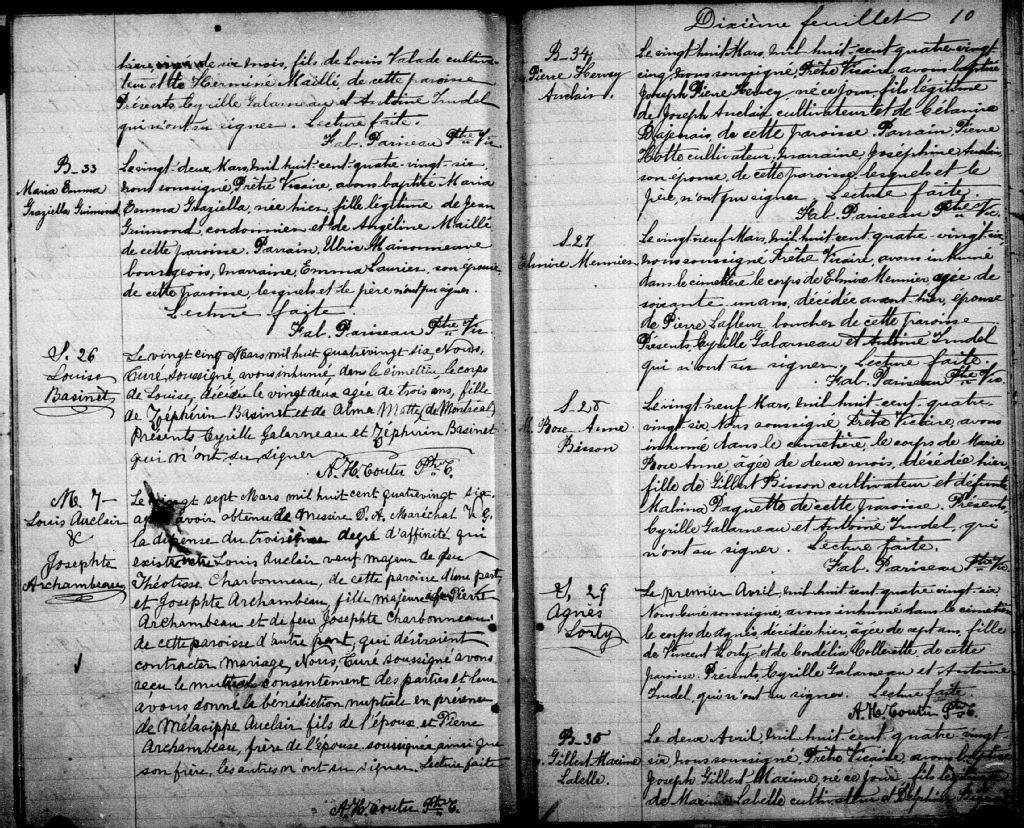 hier, de six mois, fils de Louis Valade cultiva-
teur et de Hermine Maillé, de cette paroisse
Présents Cyrille Galarneau et Antoine Trudel
qui n'ont su signer. Lecture faite.
Fab. Pariseau Ptre Vic.
B_33
Maria Emma
Graziella Guimond
Le vingt-deux Mars, mil huit-cent-quatre-vingt-six
nous soussigné, Prêtre Vicaire, avons baptisé Maria
Emma Graziella, née hier, fille légitime de Jean
Guimond, cordonnier et de Angéline Maillé
de cette paroisse. Parrain, Maisonneuve
bourgeois, marraine, Emma Laurier, son épouse
de cette paroisse, lesquels et le père n'ont pu signer.
Lecture faite.
Fab. Pariseau Ptre Vic.
S. 26
Louise
Basinet
Le vingt cinq Mars, mil huit quatrevingt six, Nous,
Curé, soussigné, avons inhumé, dans le cimetière le corps
de Louise, décédée le vingt deux agée de trois ans, fille
de Zéphirin Basinet et de Alma Motte (de Montréal)
Présents Cyrille Galarneau et Zéphirin Basinet
qui n'ont su signer
A. H. Coutu Ptre C.
M. 7
Louis Auclair
&
Josephte
Archambeau
Le vingt sept Mars mil huit cent quatrevingt six
après avoir obtenu de Messire P. A. Maréchal V. G.
la dispense du troisième degré d'affinité qui
existe entre Louis Auclair veuf majeur de feu
Théotisse Charbonneau, de cette paroisse d'une part
et Josephte Archambeau, fille majeure de Pierre
Archambeau et de feu Josephte Charbonneau
de cette paroisse d'autre part, qui désiraient
contracter mariage, Nous, Curé soussigné avons
reçu le mutuel consentement des parties et leur
avons donné la bénédiction nuptiale en présence
de Mélasippe Auclair fils de l'époux et Pierre
Archambeau, frère de l'épouse soussignée ainsi que
son frère, les autres n'ont su signer. Lecture faite
A. H. Coutu Ptre C.
Dixième feuillet 10
B_34
Pierre Hervey
Auclair.
Le vingt-huit Mars, mil huit-cent quatre-vingt
cinq nous soussigné, Prêtre Vicaire avons baptisé
Joseph Pierre Hervey né ce jour fils légitime
de Joseph Auclair cultivateur et de Célanire
Dajenais de cette paroisse. Parrain, Pierre
Hotte cultivateur, marraine, Joséphine
son épouse, de cette paroisse, lesquels et le
père, n'ont pu signer. Lecture faite.
Fab. Pariseau Ptre Vic.
S. 27
Elmire Meunier
Le vingt-neuf Mars, mil huit-cent quatre-vingt-six
nous soussigné Prêtre Vicaire, avons inhumé
dans le cimetière le corps de Elmire Meunier agée de
soixante un ans, décédée avant hier, épouse
de Pierre Lafleur boucher de cette paroisse
Présents, Cyrille Galarneau et Antoine Trudel
qui n'ont su signer. Lecture faite.
Fab. Pariseau Ptre Vic.
S. 28
M. Rose Anne
Bisson
Le vingt-neuf Mars, mil huit-cent quatre
vingt-six Nous soussigné Prêtre Vicaire, avons
inhumé dans le cimetière, le corps de Marie
Rose Anne, âgée de deux mois, décédée hier,
fille de Gilbert Bisson cultivateur et défunte
Malvina Paquette de cette paroisse. Présents,
Cyrille Galarneau et Antoine Trudel, qui
n'ont su signer. Lecture faite.
Fab. Pariseau Ptre Vic.
S. 29
Agnès
Lorty
Le premier Avril, mil huit-cent quatre-vingt-six
Nous Curé soussigné, avons inhumé dans le cimetière
le corps de Agnès, décédée hier, âgée de sept ans, fille
de Vincent Lorty et de Cordélia Collerette, de cette
paroisse. Présents, Cyrille Galarneau et Antoine
Trudel, qui n'ont su signer. Lecture faite.
A. H. Coutu Ptre C.
B_35
Gilbert Maxime
Labelle.
Le deux Avril, mil huit-cent quatre-vingt-
six, nous soussigné, Prêtre Vicaire, avons baptisé
Joseph Gilbert Maxime né ce jour fils légitime
de Maxime Labelle cultivateur et Delphine